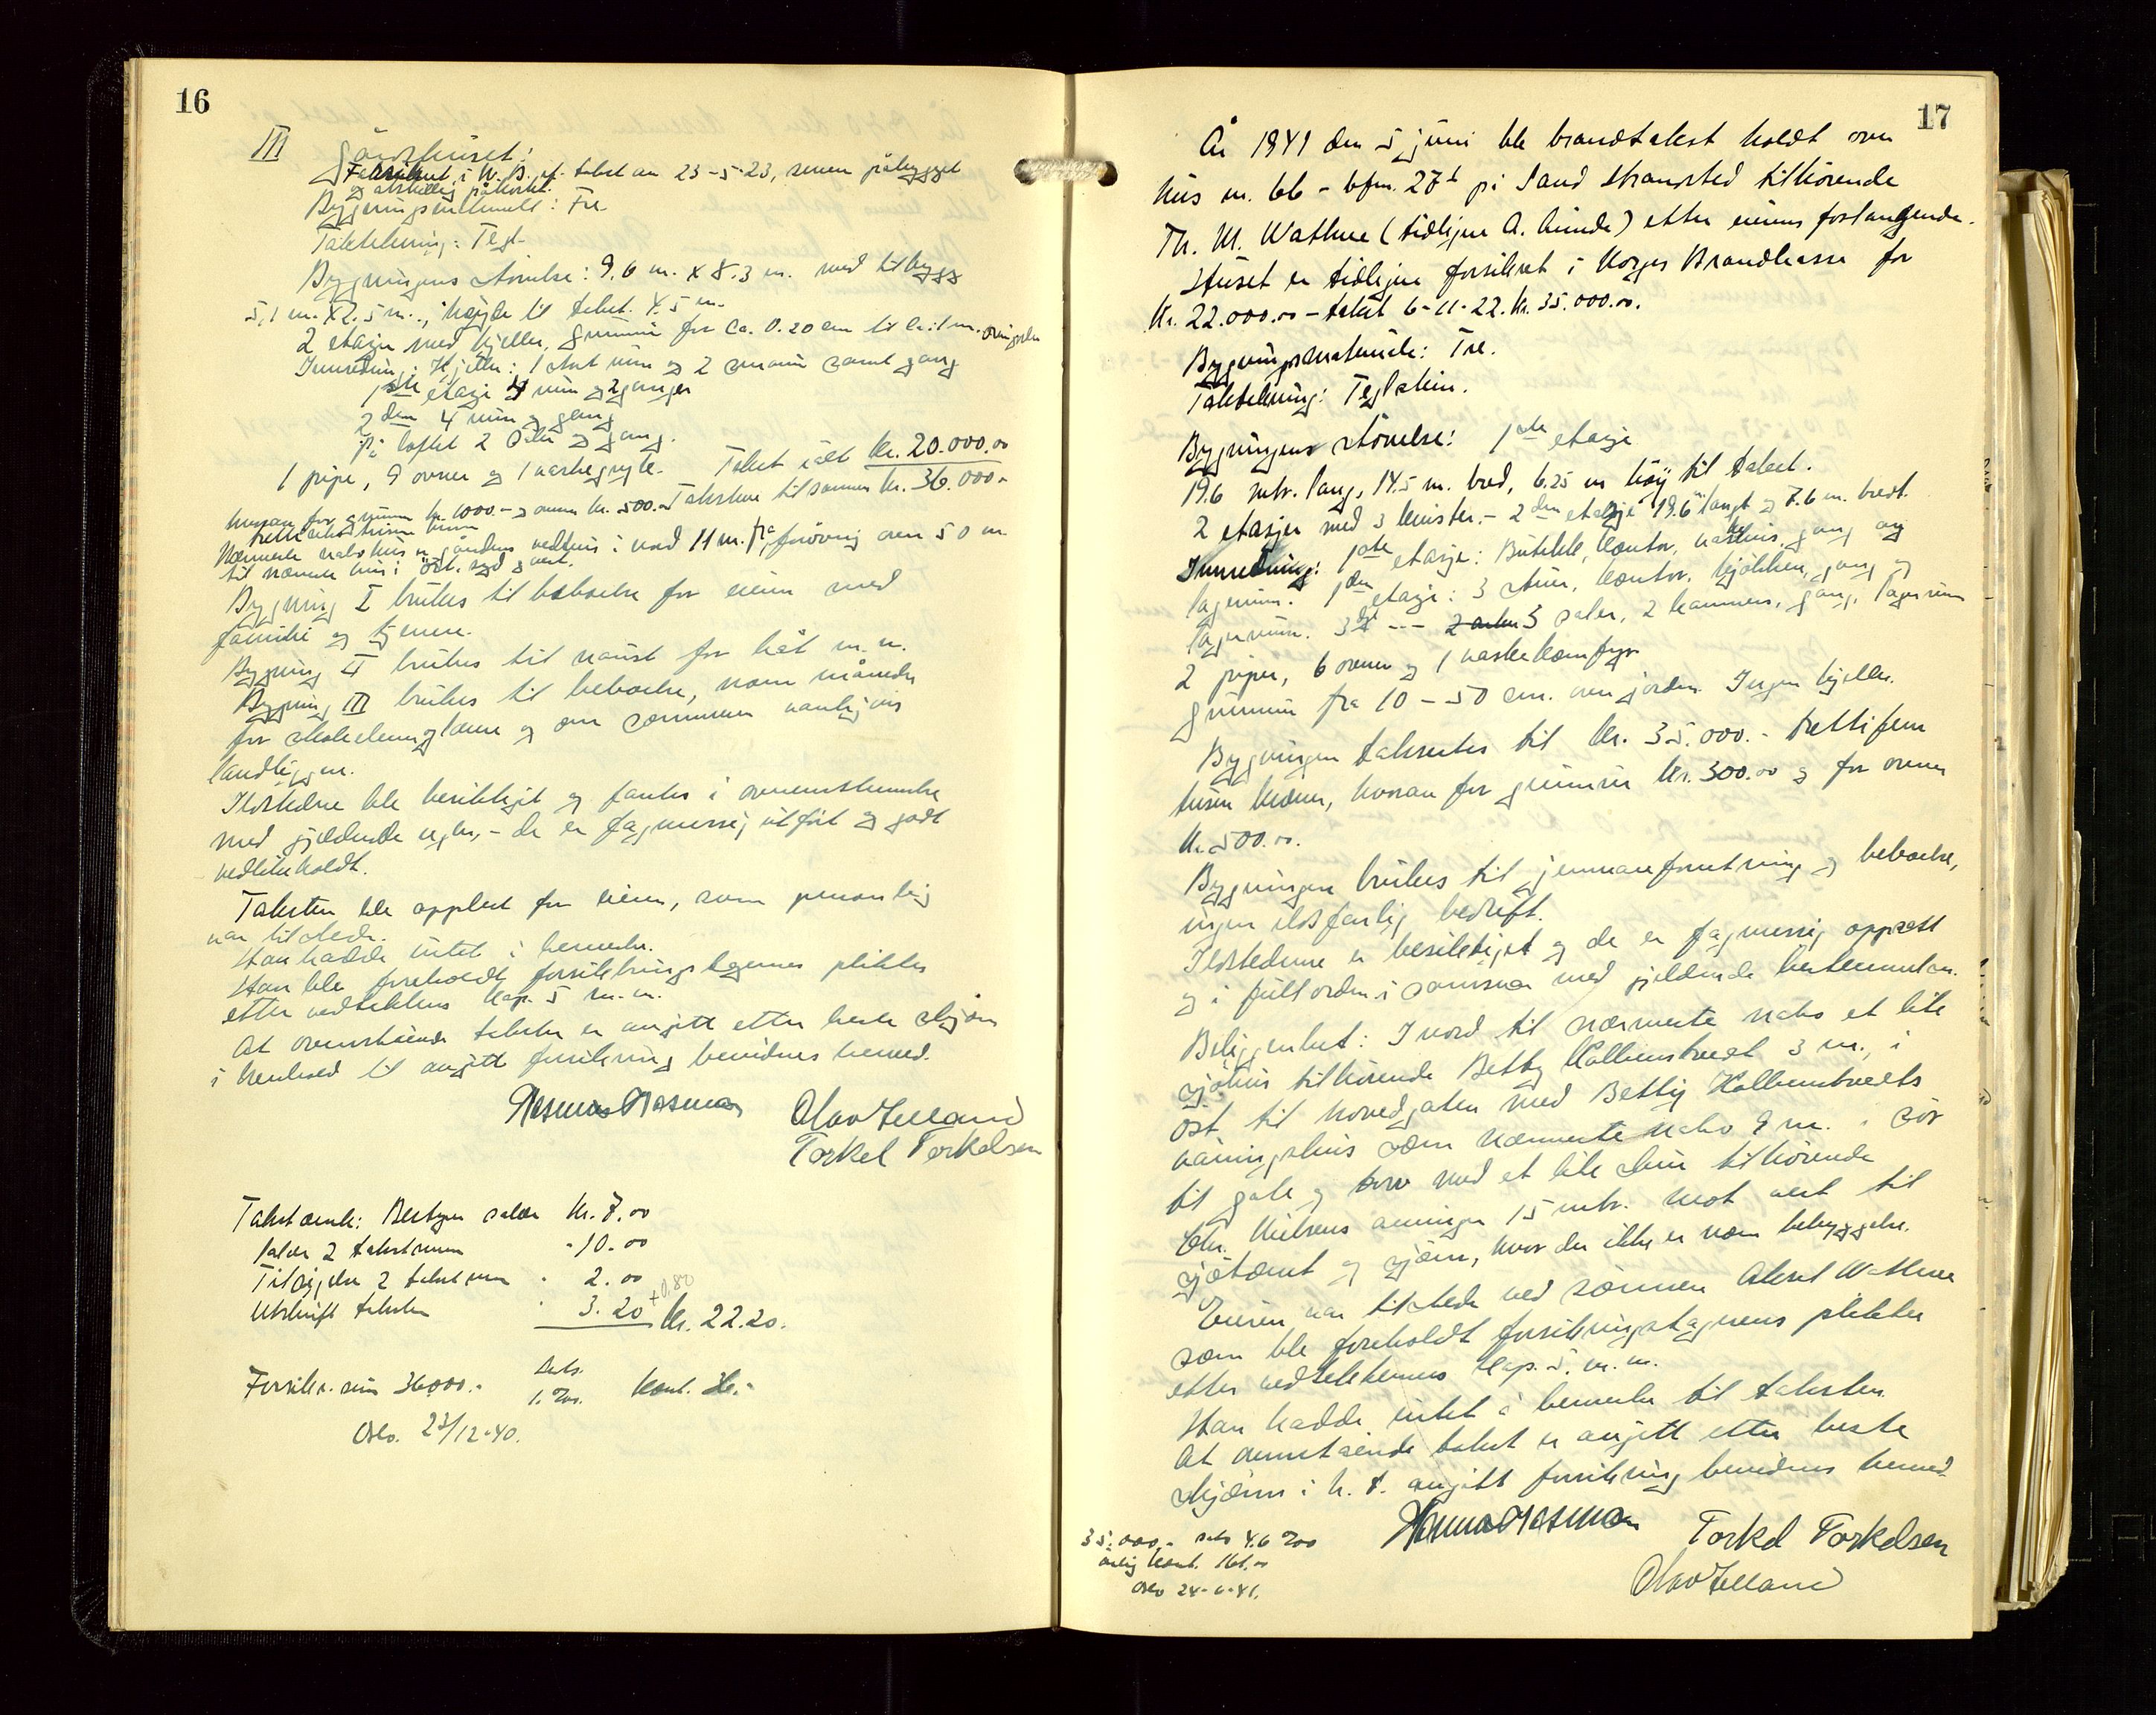 16
III Gårdshuset!
Forsikret i N. B. if. takst av 23-5-23, senere påbygget
og atskillig påkostet.
Bygningsmateriell: Tre
Taktekking: Tegl.
Bygningens størrelse: 9.6 m. x 8.3 m. med tilbygg
5,1 m. x 2.5 m., høyde til taket. 4.5 m.
2 etasjer med kjeller, grunnmur fra ca. 0.20 cm til ca: 1 m. over jorden
Innredning: Kjeller: 1 stort rum og 2 små rum samt gang
1ste etasje 4 rum og 2 ganger
2den 4 rum og gang
På loftet 2 saler og gang.
1 pipe, 9 ovner og 1 vaskegryte. Takst ialt kr. 20.000.00
hvorav for grunnmur kr. 1000.- og ovner kr. 500.00 Takstene tilsammen kr. 36.000.-
trettisekstusen kroner
Nærmeste nabohus er gårdens vedhus i nord 11 m. fra, forøvrig over 50 m.
til nærmeste hus i øst, syd og vest.
Bygning I brukes til beboelse for eieren med
familie og tjenere.
Bygning II brukes til naust for båt m.m.
Bygning III brukes til beboelse, noen måneder
for skoleungdommene og om sommeren vanligvis
landliggere.
Ildstedene ble besiktiget og fantes i overensstemmelse
med gjeldende regler, - de er fagmessig utført og godt
vedlikeholdt.
Taksten ble opplest for eieren, som personlig
var tilstede.
Han hadde intet å bemerke.
Han ble foreholdt forsikringstagernes plikter
etter vedtektens kap. 5 m.m.
At ovenstående takster er avgitt etter beste skjønn
i henhold til avgitt forsikring bevidnes herved.
Rasmus Rasmussen Olav Jelland
Torkel Torkelsen
Takstomk: Bestyrer salær Kr. 7.00
Salær 2 takstmenn " 10.00
Tilsigelse 2 takstmenn " 2.00
Utskrift taksten " 3.20 +0.80 kr. 22.20.
Forsikr. sum 36000.- Sats. 1.%0. Kont. 36.-
Oslo. 23/12-40.
17
År 1941 den 5 juni ble branntakst holdt over
hus nr. 66 - bfnr. 27b på Sand Strandsted tilhørende
Th. M. Wathne (tidligere A. Lunde) etter eierens forlangende.
Huset er tidligere forsikret i Norges Brannkasse for
kr. 22.000.00 - takst 6-11-22. kr. 35.000.00.
Bygningsmateriale: Tre.
Taktekking: Teglstein.
Bygningens størrelse: 1ste etasje
19.6 mtr. lang, 14.5 m. bred, 6.25 m høy til taket.
2 etasjer med 3 kvister. - 2den etasje 19.6 m langt og 7.6 m. bredt.
Innredning: 1ste etasje: Butikk, kontor, vaskehus, gang og
lagerrum. 1den etasje: 3 stuer, kontor, kjøkken, gang og
lagerrum. 3dje --- 3 saler, 2 kammers, gang, lagerrum
2 piper, 6 ovner og 1 vaskekomfyr
Grunnmur fra 10 - 50 cm. over jorden. Ingen kjeller.
Bygningen takseres til kr. 35.000.- trettifem
tusen kroner, hvorav for grunnmur kr. 300.00 og for ovner
kr. 500.00.
Bygningen brukes til jernvareforretning og beboelse,
ingen ildsfarlig bedrift.
Ildstedene er besiktiget og de er fagmessig oppsatt
og i full orden i samsvar med gjeldende bestemmelser.
Beliggenhet: I nord til nærmeste nabo et lite
sjøhus tilhørende Betty Kolbenstvedt 3 m., i
øst til hovedgaten med Betty Kolbenstvedts
våningshus som nærmeste nabo 9 m. i sør
til gate og torv med et lite skur tilhørende
Chr. Nielsens arvinger 15 mtr. mot vest til
sjøtomt og sjøen, hvor der ikke er noen bebyggelse.
Eieren var tilstede ved sønnen Aksel Wathne
som ble foreholdt forsikringstagerens plikter
etter vedtektenes kap. 5. m.m.
Han hadde intet å bemerke til taksten.
At ovenstående takst er avgitt etter beste
skjønn i h. t. avgitt forsikring bevidnes herved.
Rasmus Rasmussen Torkel Torkelsen
Olav Jelland
35.000.- sats 4.6 %00
årlig kont. 161.00
Oslo 24-6-41.